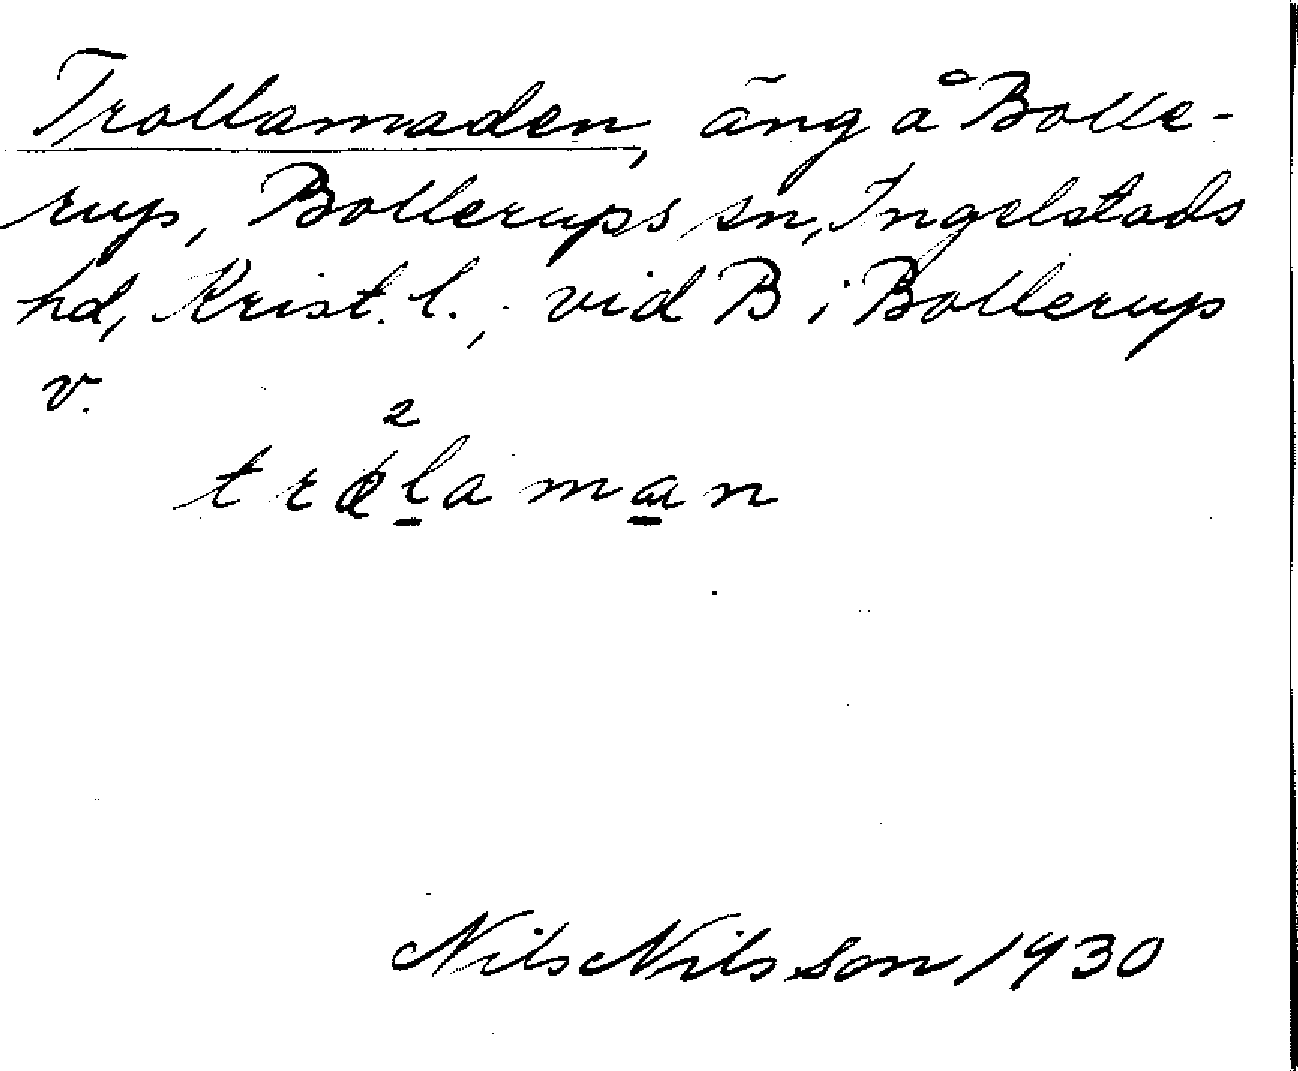 Trollamaden, äng å Bolle-
rup, Bollerups sn, Ingelstads
hd, Krist. l.; vid B i Bollerup
v.
Nils Nilsson 1930